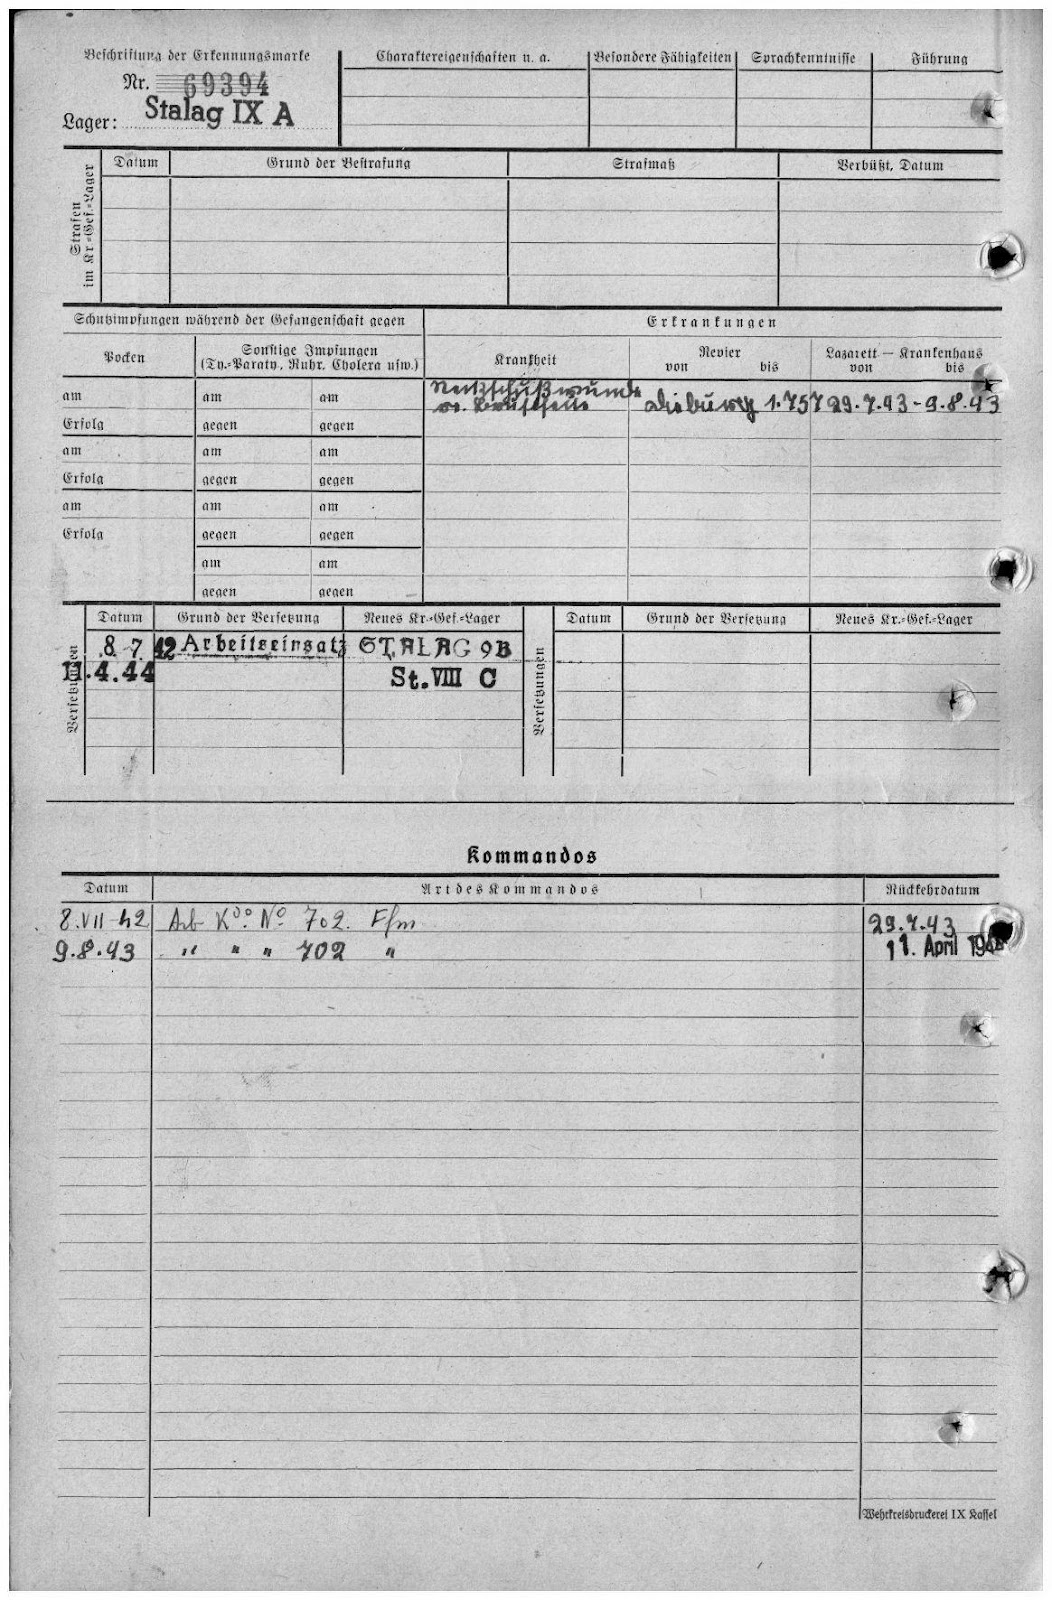 Beschriftung der Erkennungsmarke
Nr. 69394
Lager: Stalag IX A
Charaktereigenschaften u. a.
Besondere Fähigkeiten
Sprachkenntnisse
Führung
Strafen
im Kr.=Gef.=Lager
Datum
Grund der Bestrafung
Strafmaß
Verbüßt, Datum
Schutzimpfungen während der Gefangenschaft gegen
Erkrankungen
Pocken
Sonstige Impfungen
(Ty.=Paraty., Ruhr, Cholera usw.)
Krankheit
Revier
von bis
Lazarett — Krankenhaus
von bis
am am am
Erfolg gegen gegen
am am am
Erfolg gegen gegen
am am am
Erfolg gegen gegen
am am
gegen gegen
Dieburg 29.7.43 - 9.8.43
Versetzungen
Datum Grund der Versetzung Neues Kr.=Gef.=Lager
8. 7. 42 Arbeitseinsatz STALAG 9B
11.4.44 St. VIII C
Versetzungen
Datum Grund der Versetzung Neues Kr.=Gef.=Lager
Kommandos
Datum Art des Kommandos Rückkehrdatum
8.VII 42 Arb Kdo. No. 702. Ffm 29.7.43
9.8.43 " " " 702 " 11. April
Wehrkreisdruckerei IX Kassel